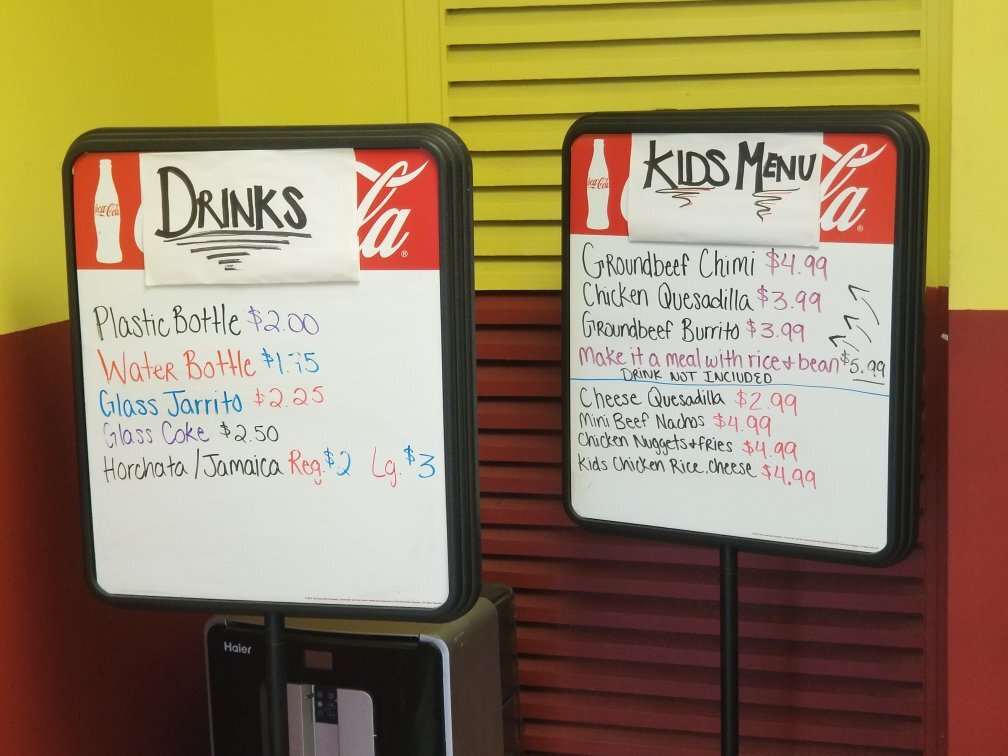 Coca-Cola
la
DRINKS
Plastic Bottle $2.00
Water Bottle $1.75
Glass Jarrito $2.25
Glass Coke $2.50
Horchata/Jamaica Reg. $2 Lg. $3
Haier
Coca-Cola
la
KIDS MENU
Groundbeef Chimi $4.99
Chicken Quesadilla $3.99
Groundbeef Burrito $3.99
make it a meal with rice + bean $5.99
DRINK NOT INCLUDED
Cheese Quesadilla $2.99
Mini Beef Nachos $4.99
Chicken Nuggets + fries $4.99
Kids Chicken Rice, cheese $4.99